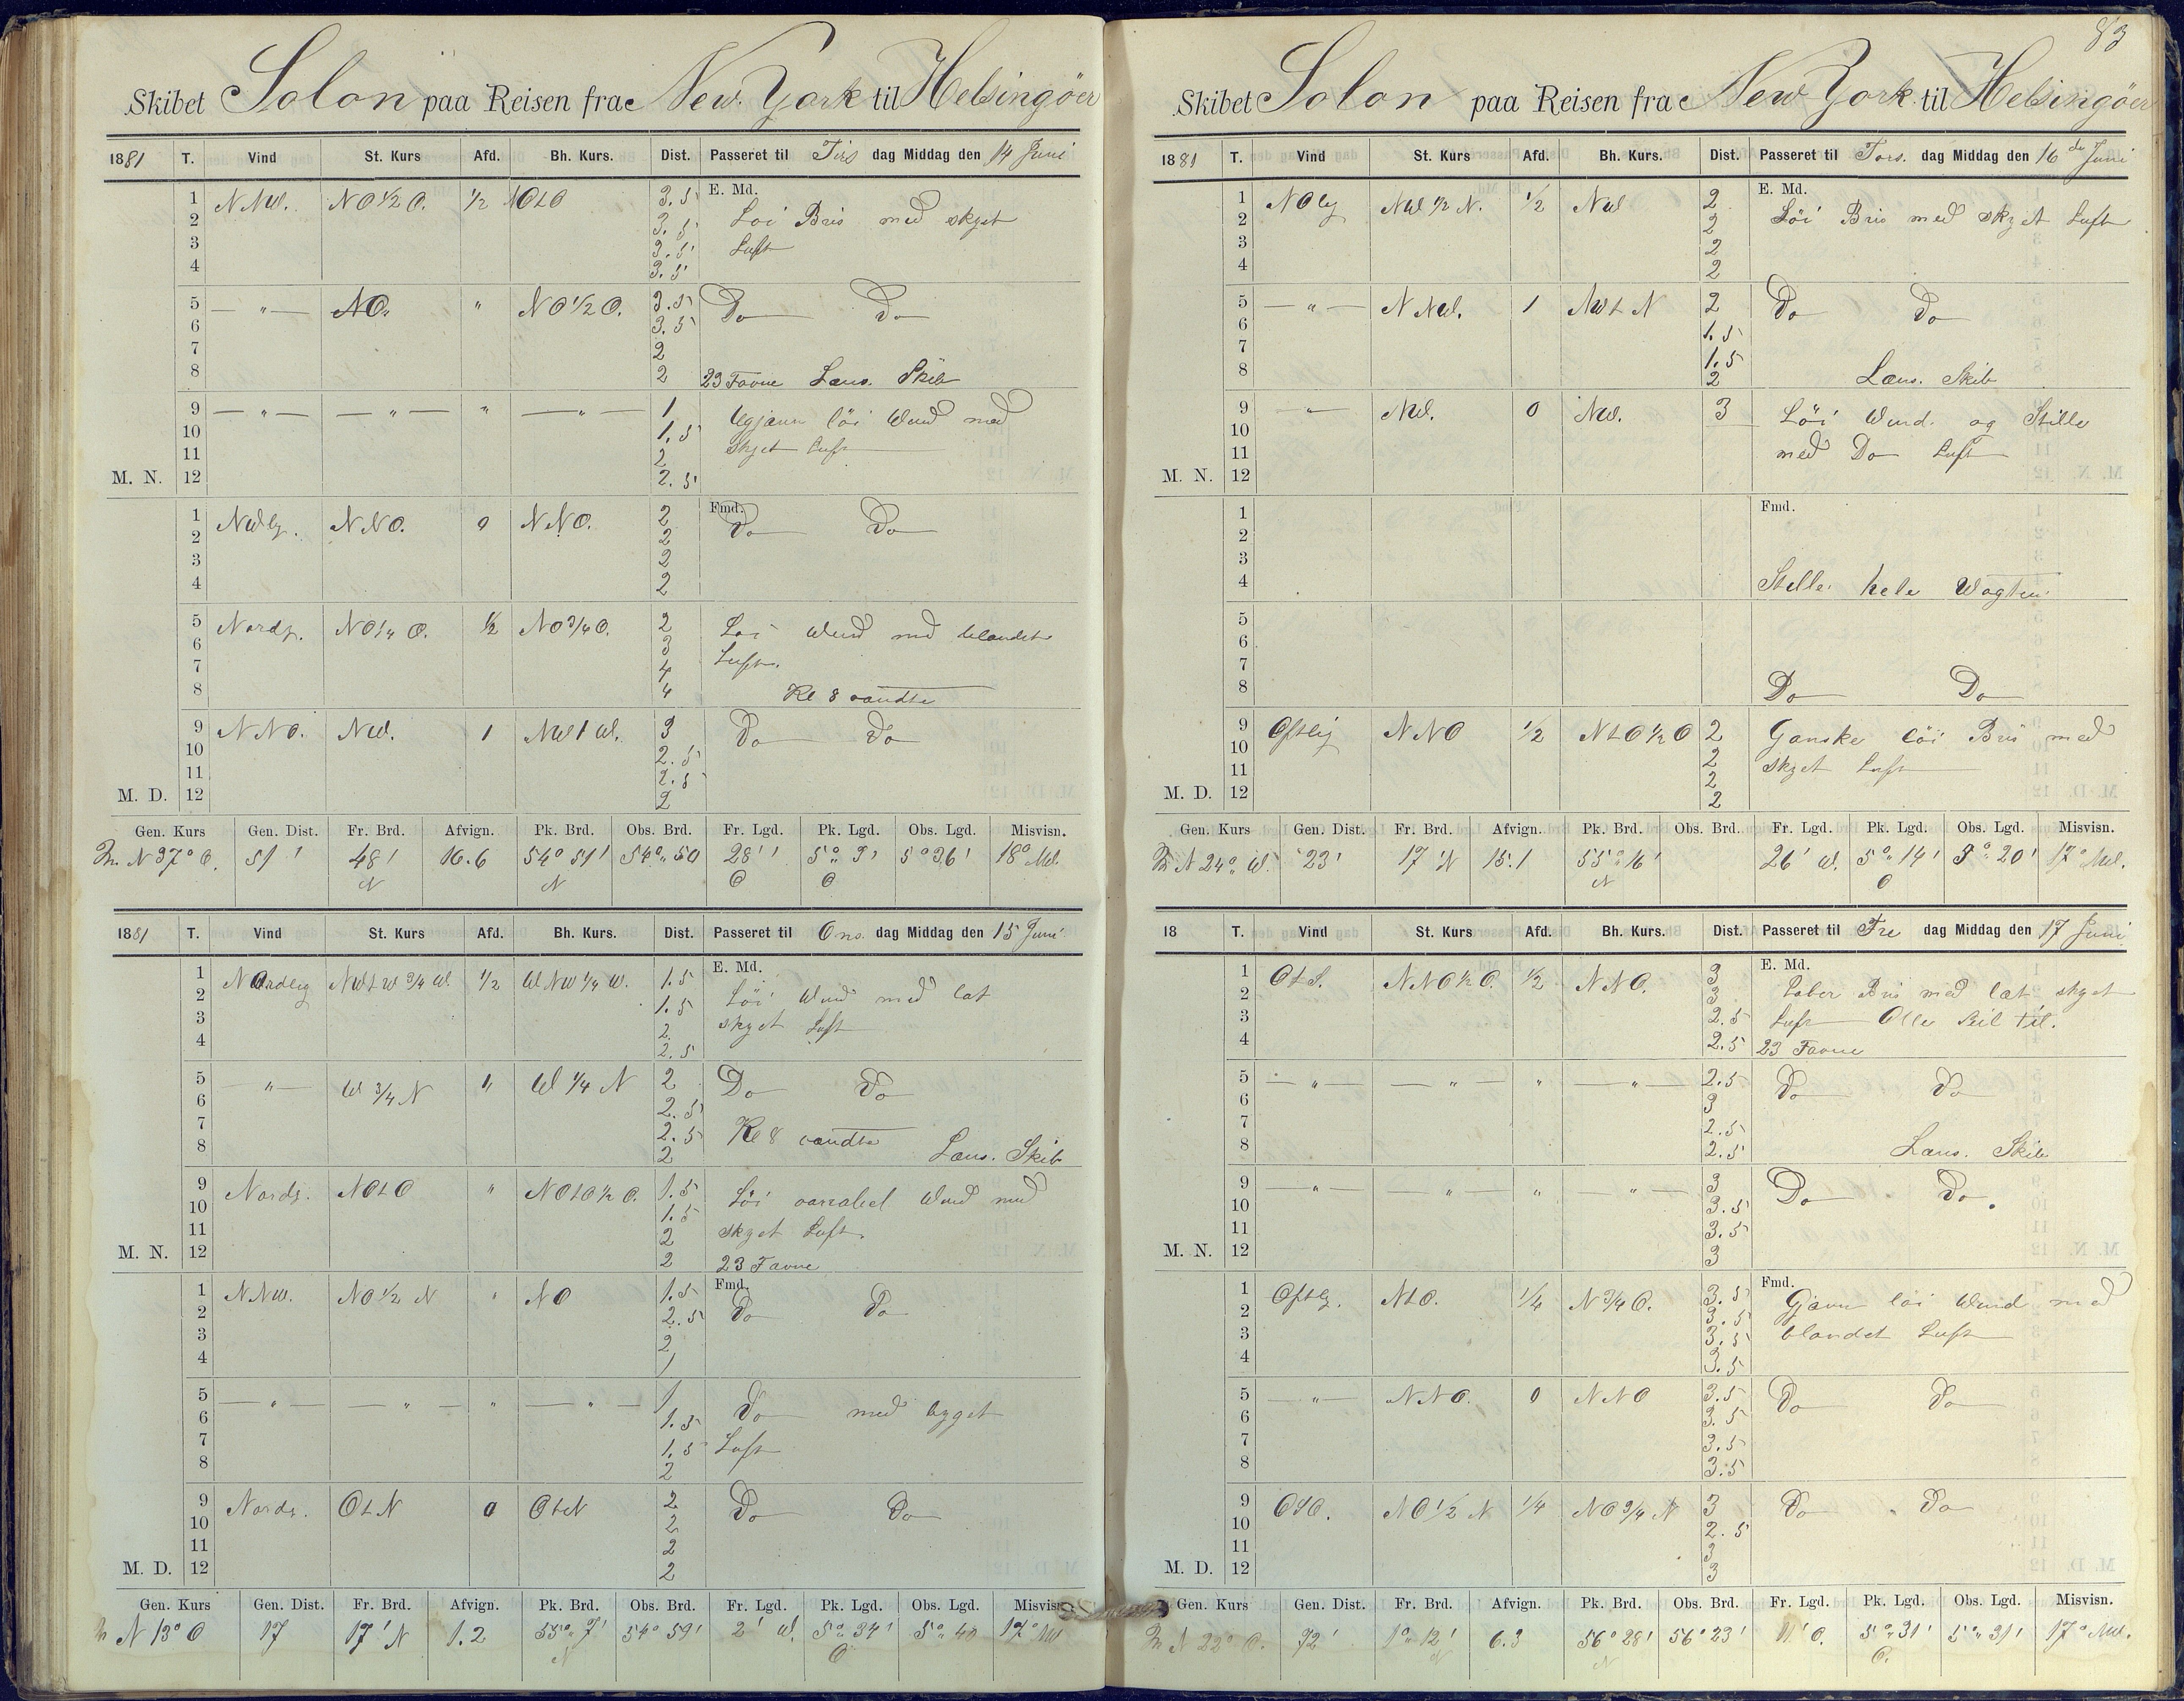 83
Skibet Solon paa Reisen fra New York til Helsingöer
1881 T. Vind St. Kurs Afd. Bh. Kurs. Dist. Passeret til Tirs dag Middag den 14 Juni
E. Md.
1 NNW. NO 1/2 O. 1/2 NOtO 3.5 Löi Bris med skyet
2 3.5 Luft
3 3.5
4 3.5
5 — " — NO. " NO 1/2 O. 3.5 Do Do
6 3.5
7 2
8 2 23 Favne Læns. Skib
9 — " — — " — " — " — 1 Ugjævn löi Wind med
10 1.5 skyet Luft
11 2
M. N. 12 2.5
Fmd.
1 NWlg. NNO. 0 NNO. 2 Do Do
2 2
3 2
4 2
5 Nordg. NO 1/4 O. 1/2 NO 3/4 O. 2 Löi Wind med blandet
6 3 Luft.
7 4
8 4 Kl 8 vendte
9 NNO. NW. 1 NWtW. 3 Do Do
10 2.5
11 2.5
M. D. 12 2
Gen. Kurs Gen. Dist. Fr. Brd. Afvign. Pk. Brd. Obs. Brd. Fr. Lgd. Pk. Lgd. Obs. Lgd. Misvisn.
N 37° O. 51' 48' N 16.6 54° 51' N 54° 50 28' O 5° 3' O 5° 36' 18° NW.
1881 T. Vind St. Kurs Afd. Bh. Kurs. Dist. Passeret til Ons dag Middag den 15 Juni
E. Md.
1 Nordlig NWtW 3/4 W. 1/2 WNW 1/4 W. 1.5 Löi Wind med let
2 1.5 skyet Luft
3 2
4 2.5
5 — " — W 3/4 N " W 1/4 N 2 Do Do
6 2.5
7 2.5 Kl 8 vendte
8 2 Læns. Skib
9 Nordg. NOtO " NOtO 1/2 O. 1.5 Löi variabel Wind med
10 1.5 skyet Luft.
11 2
M. N. 12 2 23 Favne
Fmd.
1 NNW. NO 1/2 N " NO 1.5 Do Do
2 2.5
3 2
4 1
5 — " — — " — " — " — 1 Do med bygget
6 1.5 Luft
7 1.5
8 2
9 Nordg. OtN 0 OtN 2 Do Do
10 2
11 2
M. D. 12 2
Gen. Kurs Gen. Dist. Fr. Brd. Afvign. Pk. Brd. Obs. Brd. Fr. Lgd. Pk. Lgd. Obs. Lgd. Misvisn.
N 13° O 17 17' N 1.2 55° 7' N 54° 59' 2' W. 5° 34' O 17° NW
Skibet Solon paa Reisen fra New York til Helsingöer
1881 T. Vind St. Kurs Afd. Bh. Kurs. Dist. Passeret til Tors. dag Middag den 16de Juni
E. Md.
1 NOlg NW 1/2 N. 1/2 NW 2 Löi Bris med skyet Luft
2 2
3 2
4 2
5 — " — NNW. 1 NWtN 2 Do Do
6 1.5
7 1.5
8 2 Læns. Skib
9 — " — NW. 0 NW. 3 Löi Wind. og Stille
10 med Do Luft
11
M. N. 12
Fmd.
1
2
3
4 Stille hele Wagten
5
6
7
8 Do Do
9 Ostlig NNO 1/2 NtO 1/2 O 2 Ganske löi Bris med
10 2 skyet Luft
11 2
M. D. 12 2
Gen. Kurs Gen. Dist. Fr. Brd. Afvign. Pk. Brd. Obs. Brd. Fr. Lgd. Pk. Lgd. Obs. Lgd. Misvisn.
N 24° W. 23' 17' N 15.1 55° 16' N 26' W. 5° 14' O 5° 20' 17° NW.
18 T. Vind St. Kurs Afd. Bh. Kurs. Dist. Passeret til Fre dag Middag den 17 Juni
E. Md.
1 OtS. NNO 1/2 O. 1/2 NNO. 3 Laber Bris med læt skyet
2 3 Luft Alle Seil til.
3 2.5
4 2.5 23 Favne
5 — " — — " — " — " — 2.5 Do Do
6 3
7 2.5
8 2.5 Læns. Skib
9 — " — — " — " — " — 3 Do Do.
10 3.5
11 3.5
M. N. 12 3
Fmd.
1 Ostlg. NtO. 1/4 N 3/4 O. 3.5 Gjævn löi Wind med
2 3.5 blandet Luft
3 3.5
4 3.5
5 — " — NNO. 0 NNO 3.5 Do Do
6 3.5
7 3.5
8 3.5
9 OSO. NO 1/2 N 1/4 NO 3/4 N 3 Do Do
10 2.5
11 3
M. D. 12 3
Gen. Kurs Gen. Dist. Fr. Brd. Afvign. Pk. Brd. Obs. Brd. Fr. Lgd. Pk. Lgd. Obs. Lgd. Misvisn.
N 22° O. 72' 1° 12' N 6.3 56° 28' N 56° 23' 11' O. 5° 31' O. 5° 31' 17° NW.